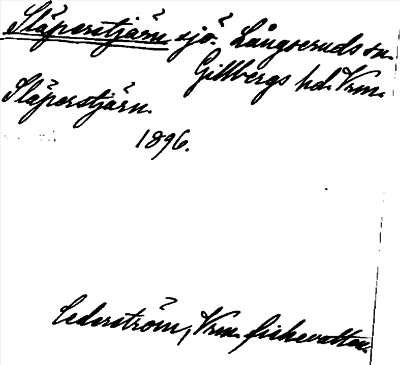 Släperstjärn sjö. Långseruds sn.
Gillbergs hd. Vrm.
Släperstjärn.
1896.
Cederström, Vrm. fiskevatten.